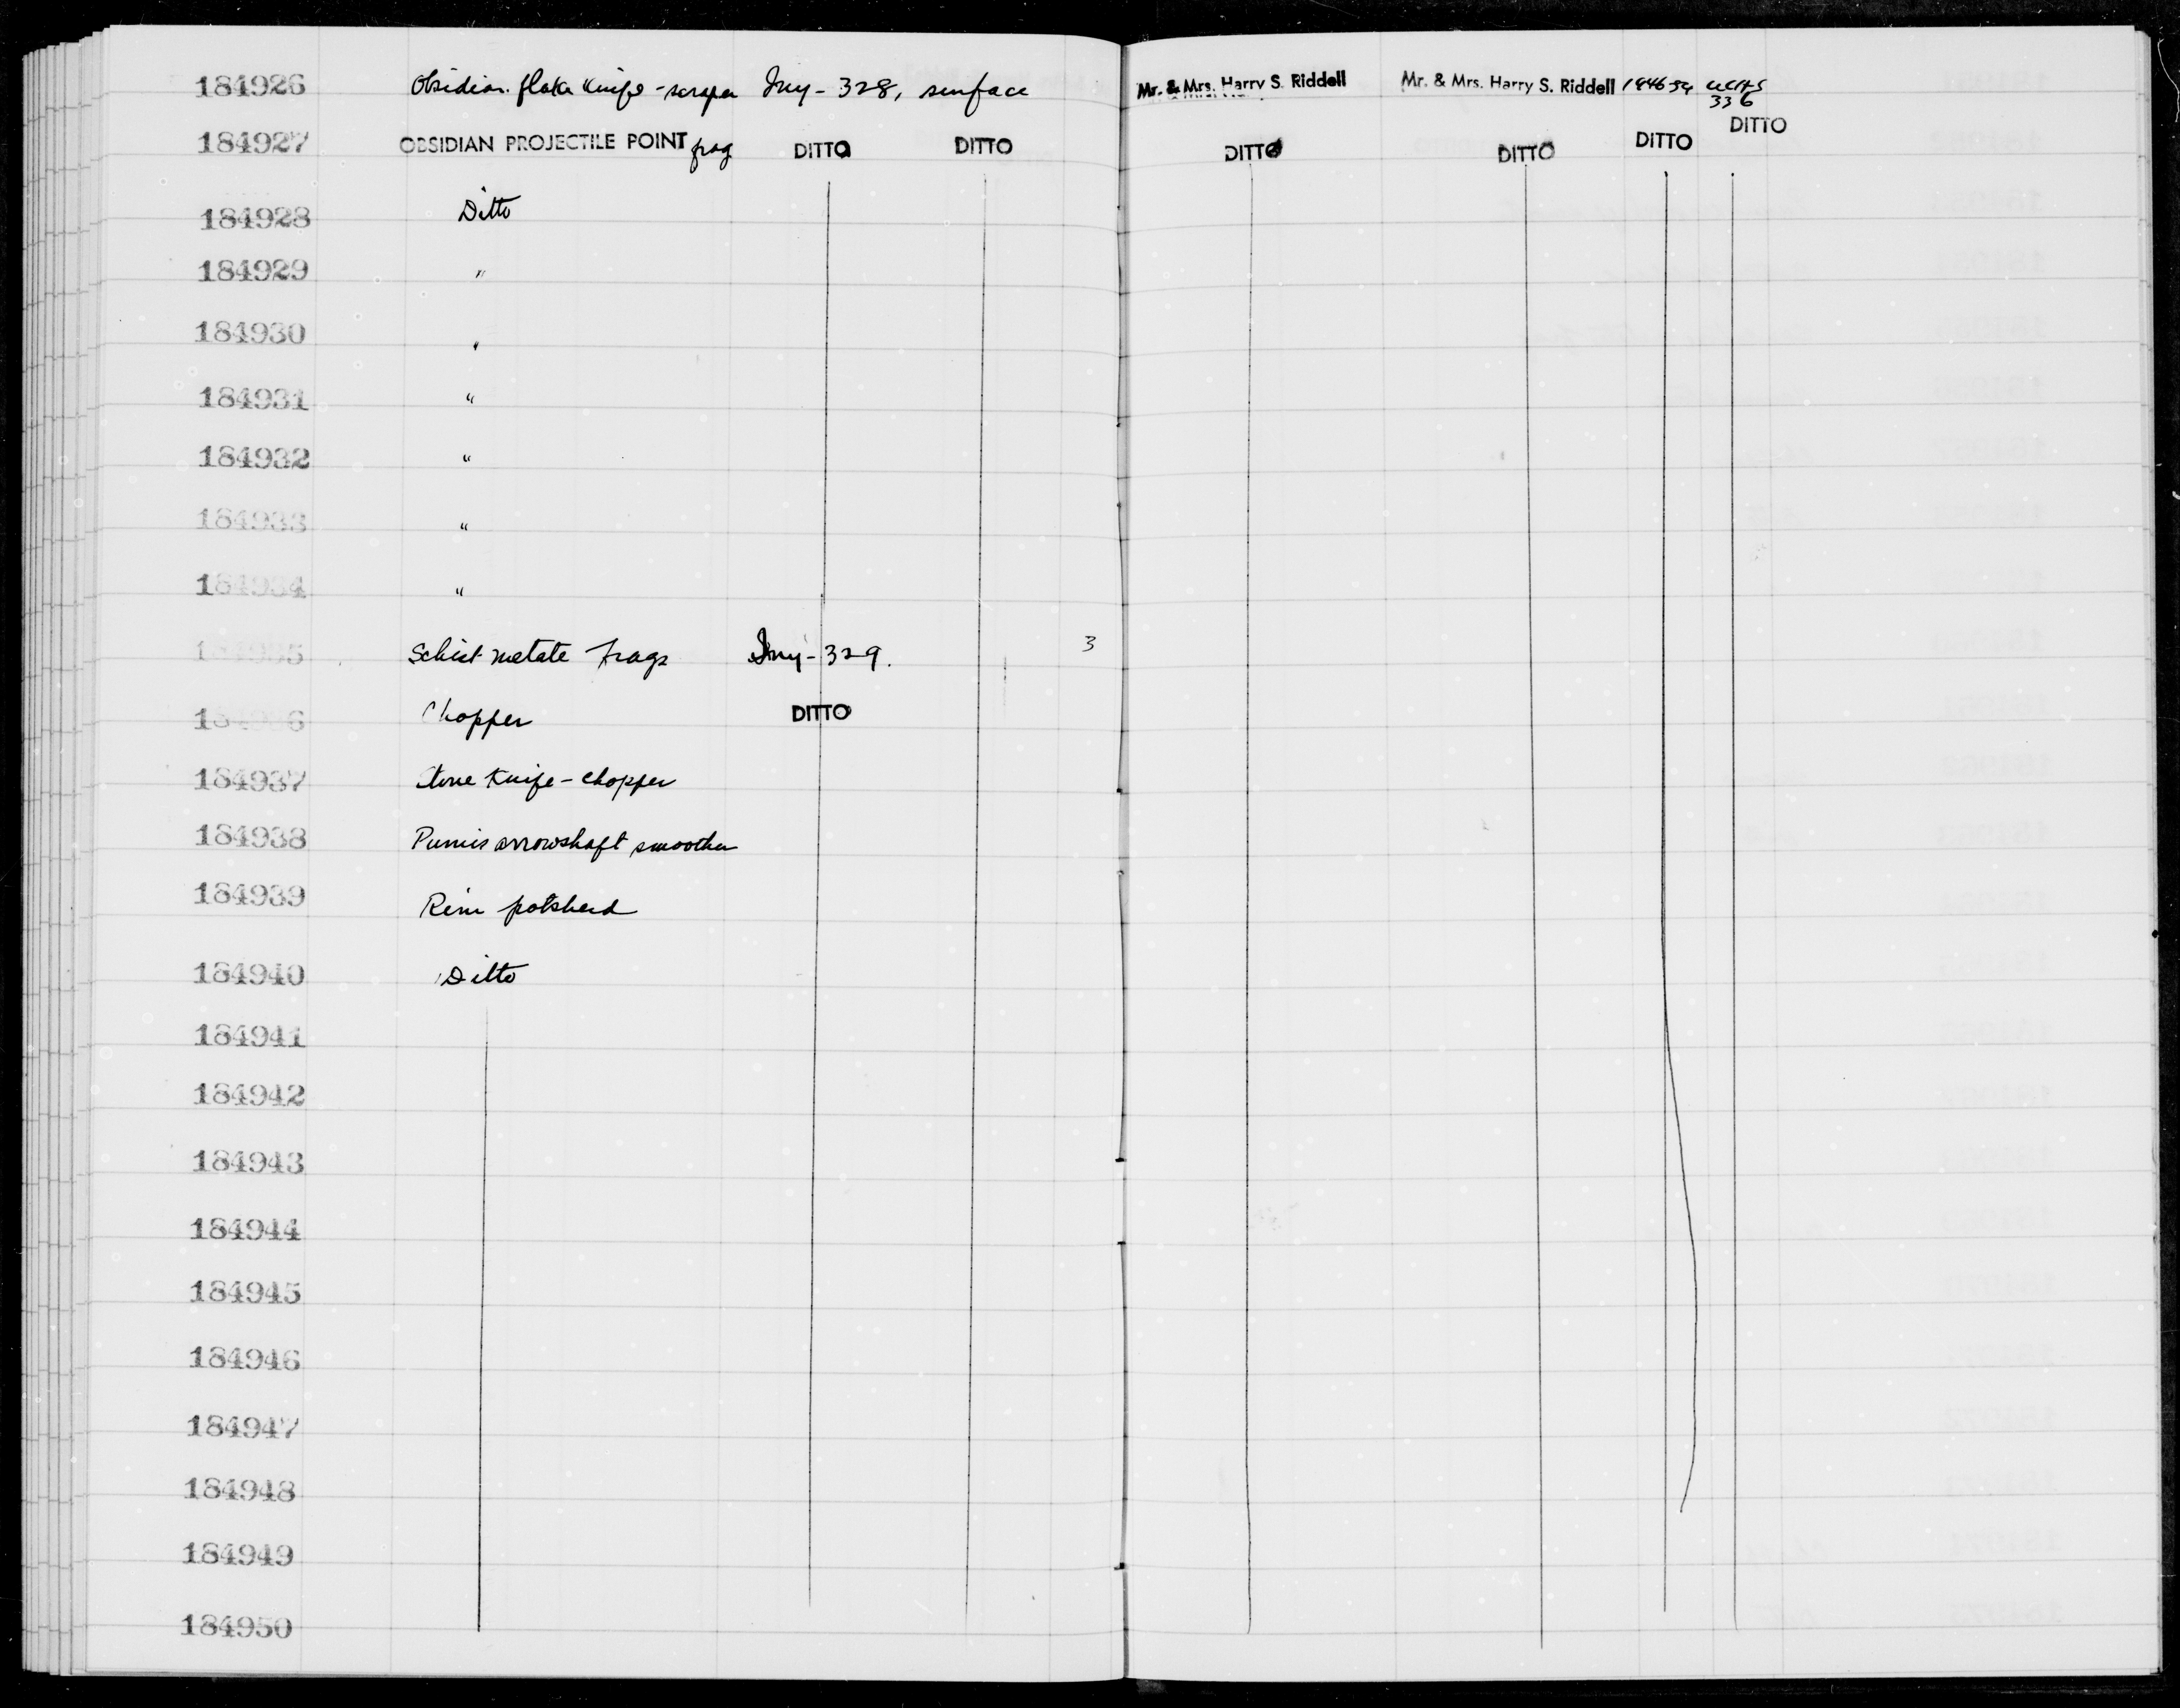 184926 Obsidian flake knife-scraper Iny-328, surface Mr. & Mrs. Harry S. Riddell Mr. & Mrs. Harry S. Riddell UCAS
336
184927 OBSIDIAN PROJECTILE POINT frag DITTO DITTO DITTO DITTO DITTO DITTO
184928 Ditto
184929 "
184930 "
184931 "
184932 "
184933 "
184934 "
184935 Schist metate frags Iny-329. 3
184936 Chopper DITTO
184937 Stone knife-chopper
184938 Pumis arrowshaft smoother
184939 Rim potsherd
184940 Ditto
184941
184942
184943
184944
184945
184946
184947
184948
184949
184950